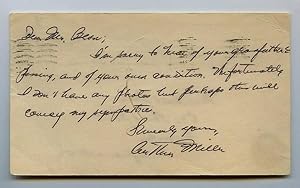 Dear Mr.
I'm sorry to hear of your grandfather's
passing, and of your own condition. Unfortunately
I don't have any photos but perhaps this will
convey my sympathies.
Sincerely yours,
Arthur Miller